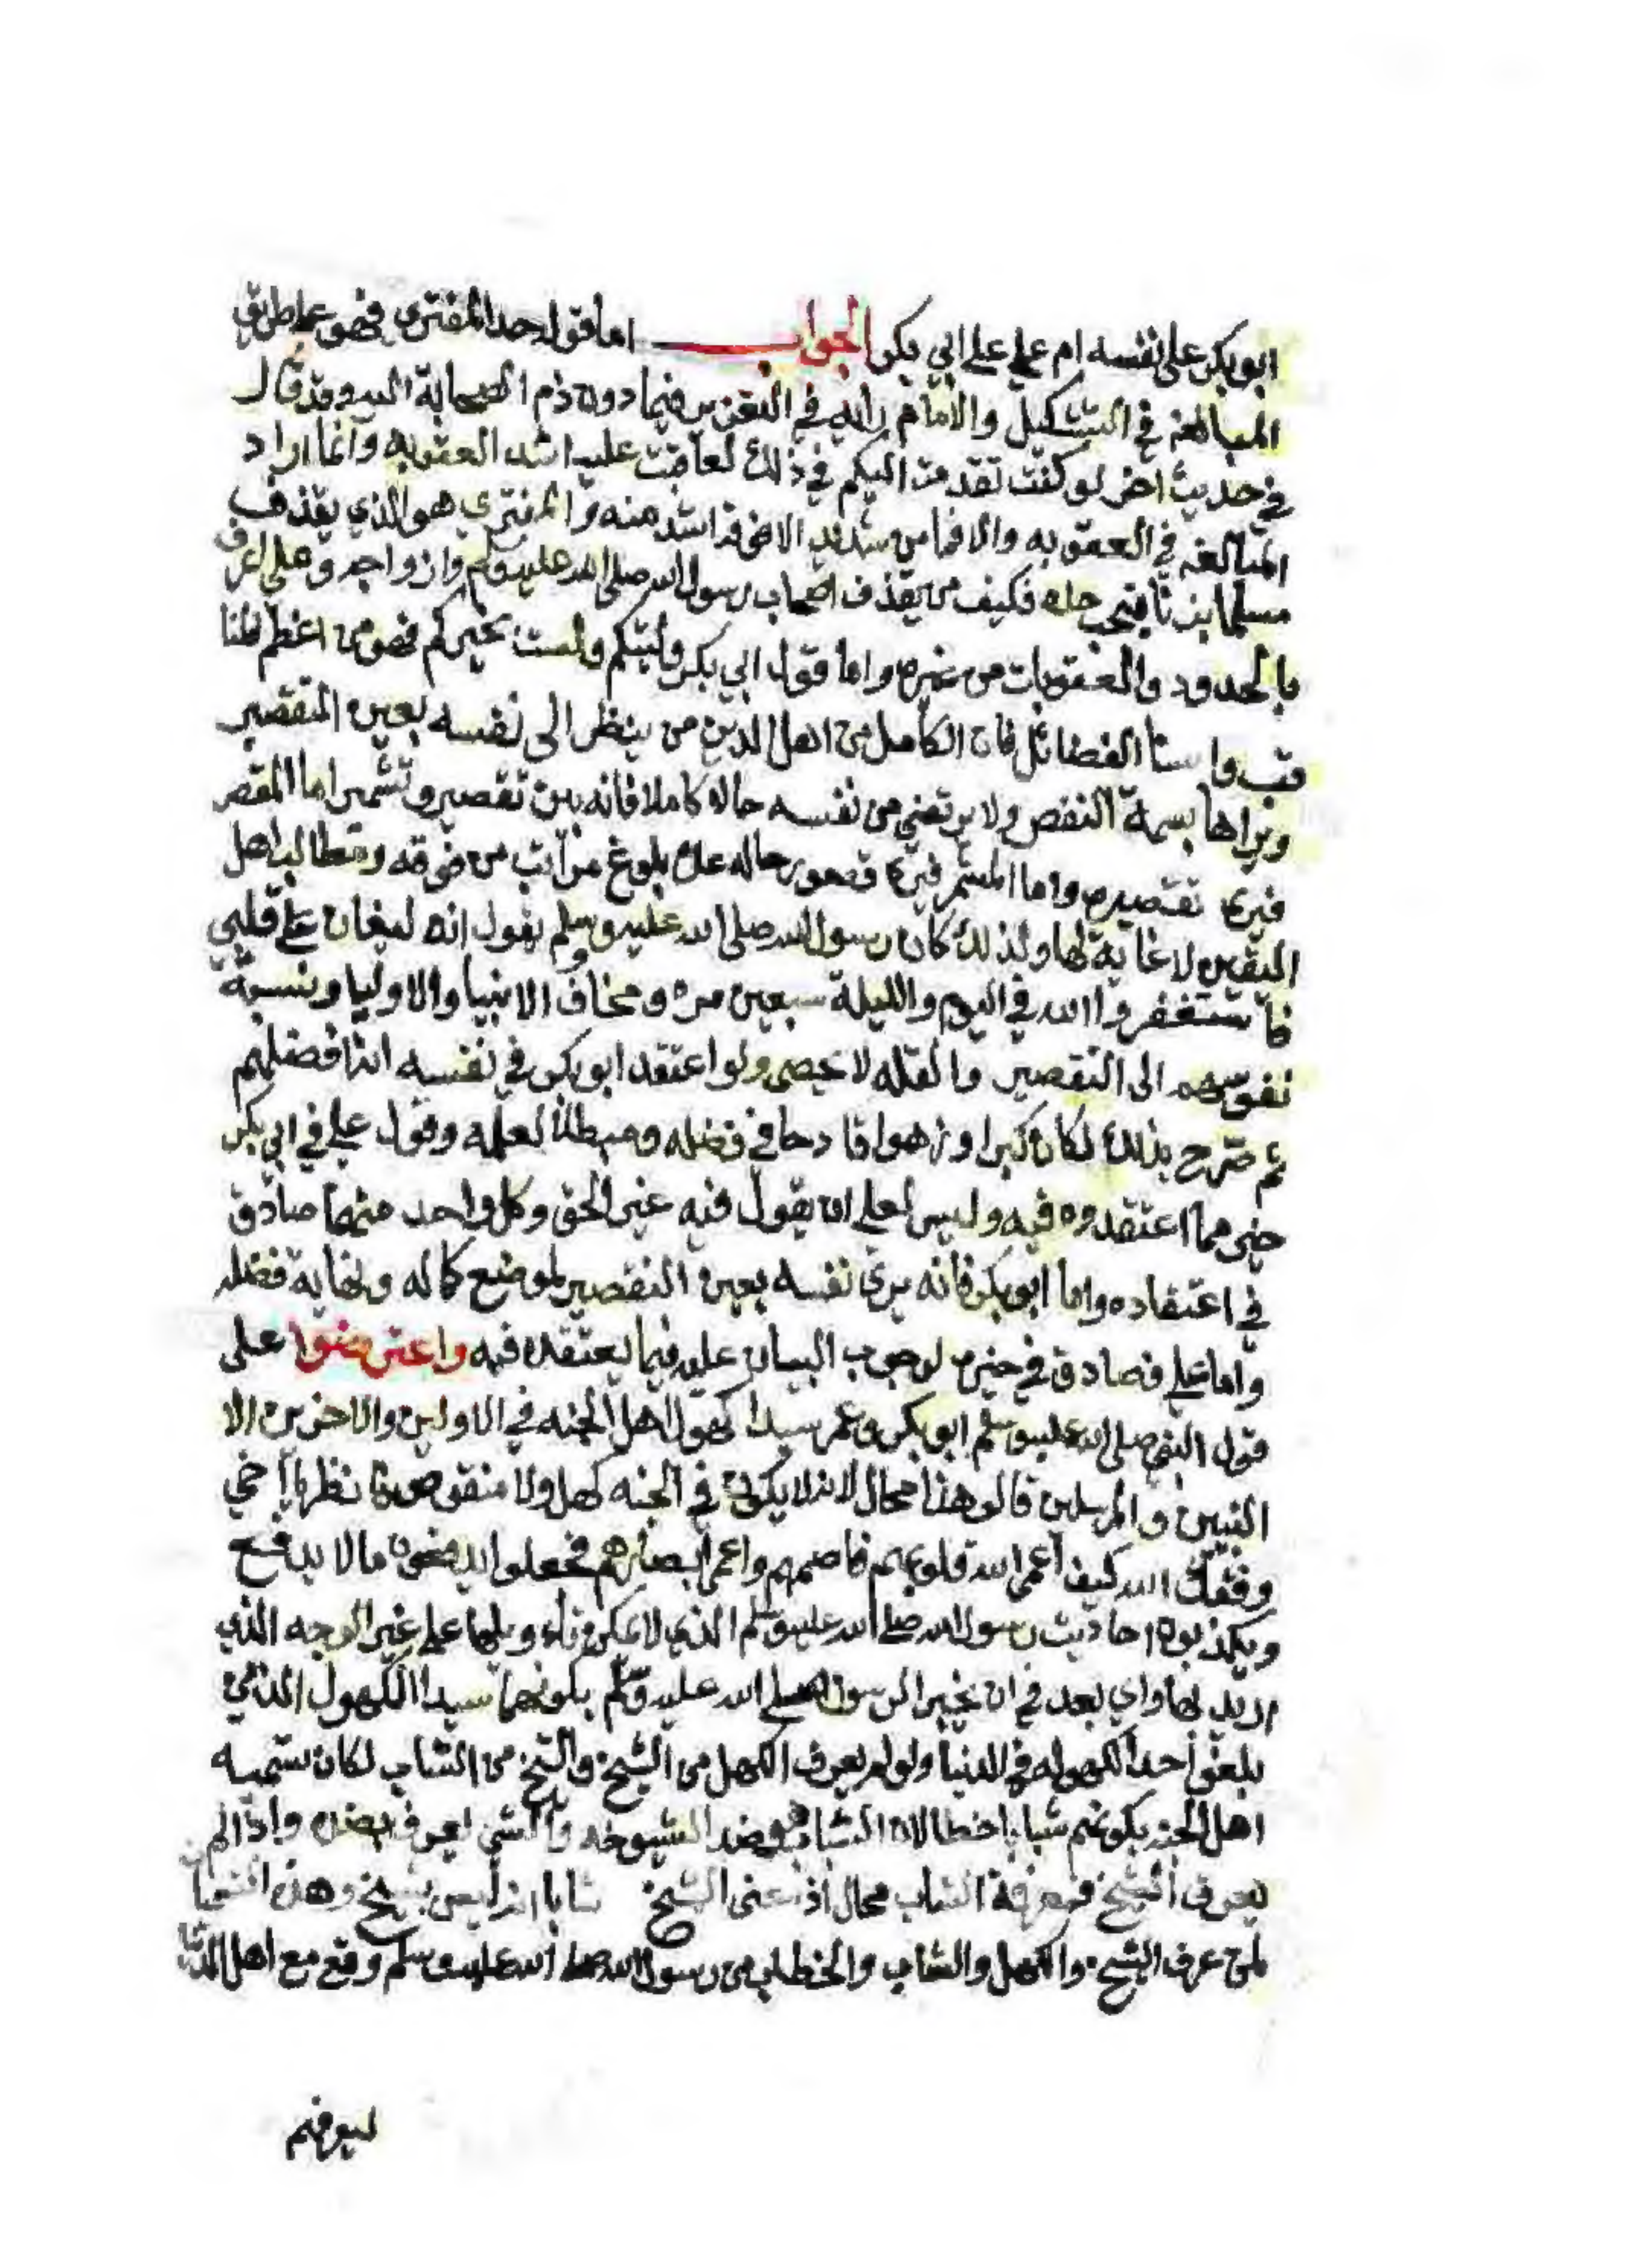 ابو بكر على نفسه ام علي على ابي بكر الجواب اما قوله حد المفتري فهو على طريق
المبالغة في التنكيل والامام رايه في التعزير فيما دون ذم الصحابة اليه وقد قال
في حديث اخر لو كنت تقدمت اليكم في ذلك لعاقبت عليه اشد العقوبه وانما اراد
المبالغه في العقوبه والا فما من شديد الا فوقه اشد منه والمفتري هو الذي يقذف
مسلما بزنا فيجب حده فكيف من يقذف اصحاب رسول الله صلى الله عليه وسلم وازواجه وعلي اعرف
بالحدود والعقوبات من غيره واما قول ابي بكر وليتكم ولست بخيركم فهو من اعظم
الفضائل فان الكامل من اهل الدين من ينظر الى نفسه بعين التقصير
ويراها بسمة النقص ولا يرتضي من نفسه حاله كاملا فانه بين تقصير وتشمير اما المقصر
فيرى تقصيره واما المشمر فيرى قصور حاله عن بلوغ مراتب من فوقه ومطالب اهل
اليقين لا غاية لها ولذلك كان رسول الله صلى الله عليه وسلم يقول انه ليغان على قلبي
فاستغفروا الله في اليوم والليلة سبعين مره ومخاف الانبيا والاوليا ونسبة
نفوسهم الى التقصير والقله لا تحصى ولو اعتقد ابو بكر في نفسه انه افضلهم
ثم صرح بذلك لكان كبرا وزهوا قادحا في فضله ومبطلا لعمله وقول علي في ابي بكر
خير مما اعتقدوه فيه وليس لعلي ان يقول فيه غير الحق وكل واحد منهما صادق
في اعتقاده واما ابو بكر فانه يرى نفسه بعين التقصير لموضع كماله ونهاية فضله
واما علي فصادق في خبره لوجوب البيان عليه فيما يعتقده فيه واعترضوا على
قول النبي صلى الله عليه وسلم ابو بكر وعمر سيدا كهول اهل الجنه في الاولين والاخرين الا
النبيين والمرسلين قالو هذا محال لانه لا يكون في الجنه كهل ولا منقوص فانظر يا اخي
وفقك الله كيف اعمى الله قلوبهم فاصمهم واعمى ابصارهم فجعلوا يدفعون ما لا يدفع
ويكذبون احاديث رسول الله صلى الله عليه وسلم الذي لا يمكن وتاءويلها على غير الوجه الذي
اريد بها واي بعد في ان يخبر الرسول صلى الله عليه وسلم بكونهما سيدا الكهول الذي
بلغو احد الكهوله في الدنيا ولو لم يعرف الكهل من الشيخ والشيخ من الشاب لكان تسميه
اهل الجنه بكونهم شبابا خطا لان الشباب هو ضد الشيوخه والشي يعرف بضده واذا لم
يعرف الشيخ فمعرفة الشاب محال اذ عنى الشيخ شابا انه ليس بشيخ وهذا
لمن عرف الشيخ والكهل والشاب والخطاب من رسول الله صلى الله عليه وسلم وقع مع اهل الدنيا
ليعرفهم